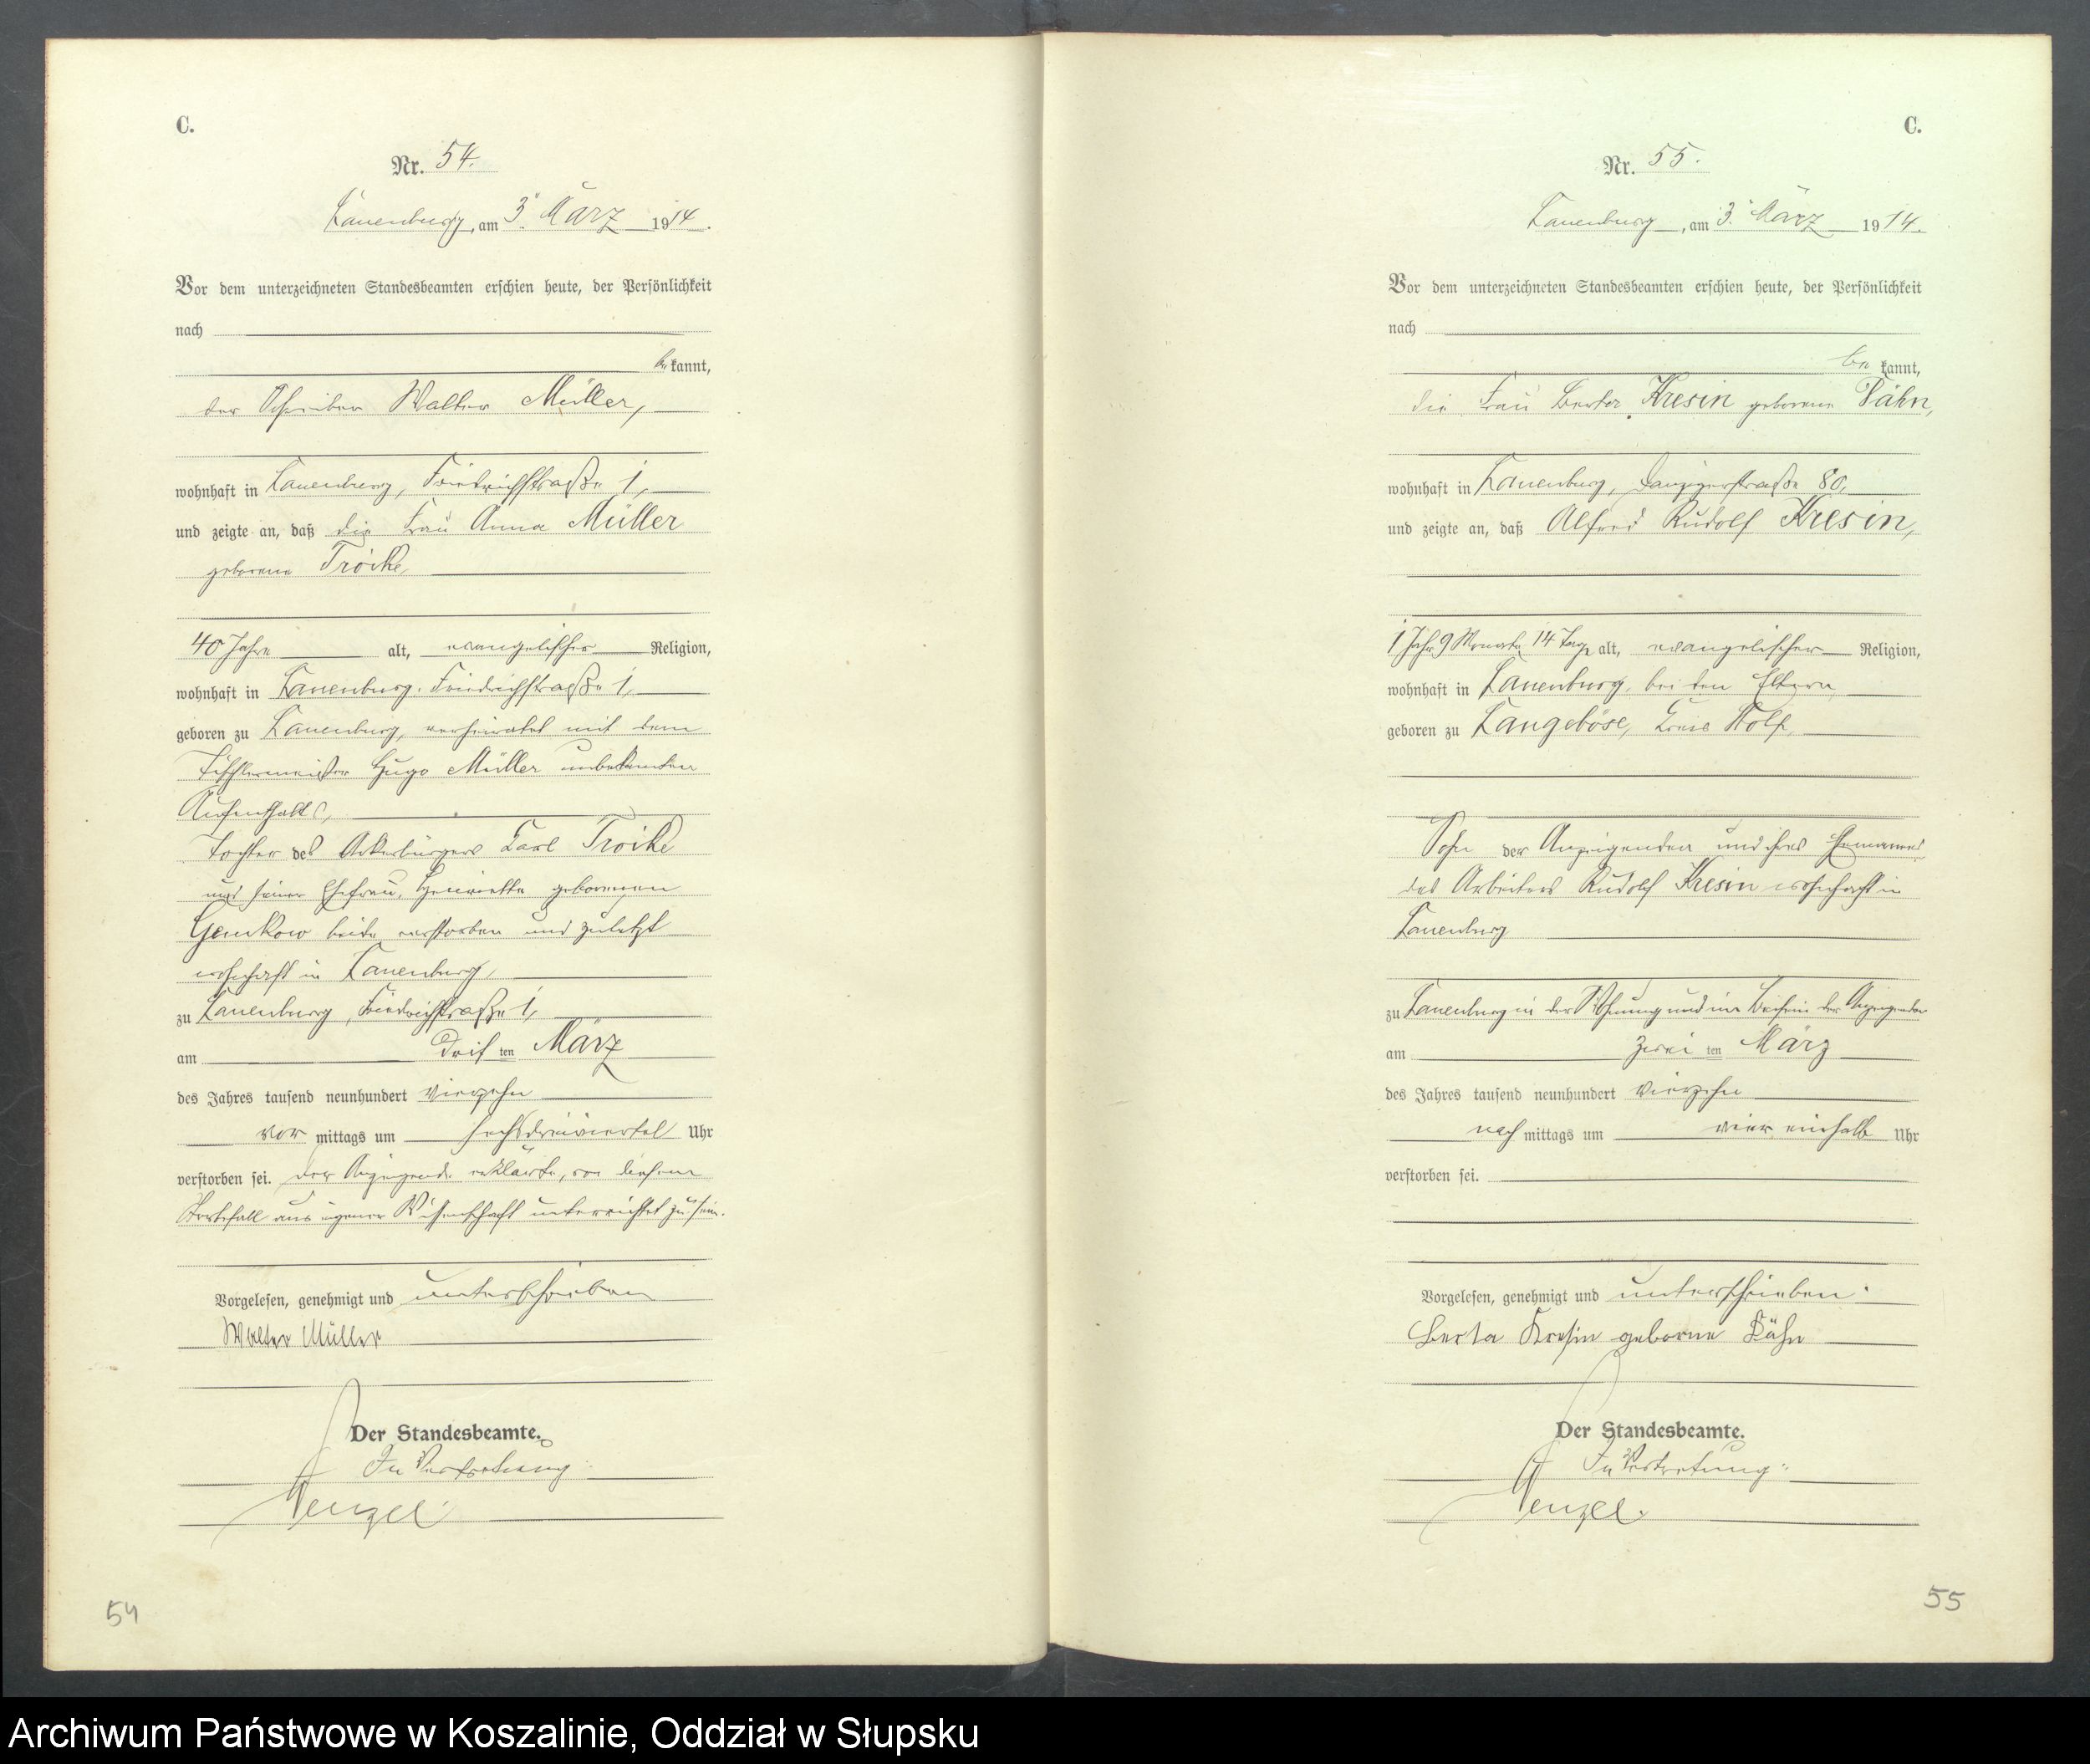 C.
Nr. 54.
Lauenburg, am 3. März 1914.
Vor dem unterzeichneten Standesbeamten erschien heute, der Persönlichkeit
nach
bekannt,
der Schreiber Walter Müller,
wohnhaft in Lauenburg, Friedrichstraße 1,
und zeigte an, daß die Frau Anna Müller
geborene Troike,
40 Jahre alt, evangelischer Religion,
wohnhaft in Lauenburg, Friedrichstraße 1,
geboren zu Lauenburg, verheiratet mit dem
Tischlermeister Hugo Müller unbekannten
Aufenthalts,
Tochter des Ackerbürgers Carl Troike
und seiner Ehefrau, Henriette geborenen
Gemkow beide verstorben und zuletzt
wohnhaft in Lauenburg,
zu Lauenburg, Friedrichstraße 1,
am dritten März
des Jahres tausend neunhundert vierzehn
vor mittags um sechsdreiviertel Uhr
verstorben sei. Der Anzeigende erklärte, von diesem
Sterbefall aus eigener Wissenschaft unterrichtet zu sein.
Vorgelesen, genehmigt und unterschrieben
Walter Müller
Der Standesbeamte.
In Vertretung
Wenzel.
54
C.
Nr. 55.
Lauenburg, am 3. März 1914.
Vor dem unterzeichneten Standesbeamten erschien heute, der Persönlichkeit
nach
bekannt,
die Frau Berta Kresin geborene Pähn,
wohnhaft in Lauenburg, Danzigerstraße 80,
und zeigte an, daß Alfred Rudolf Kresin,
1 Jahr 9 Monate 14 Tage alt, evangelischer Religion,
wohnhaft in Lauenburg, bei den Eltern
geboren zu Langeböse, Kreis Stolp,
Sohn der Anzeigenden und ihres Ehemannes,
des Arbeiters Rudolf Kresin wohnhaft in
Lauenburg
zu Lauenburg in der Wohnung und im Beisein der Anzeigenden
am zweiten März
des Jahres tausend neunhundert vierzehn
nach mittags um vier einhalb Uhr
verstorben sei.
Vorgelesen, genehmigt und unterschrieben.
Berta Kresin geborne Pähn
Der Standesbeamte.
In Vertretung:
Wenzel.
55
Archiwum Państwowe w Koszalinie, Oddział w Słupsku